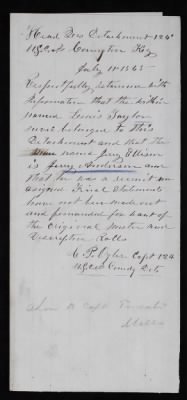 Head Qrs Detachment 124th
U.S.C.I. Covington Ky
July 11 1865
Respectfully returned with
information that the within
named Lewis Taylor
never belonged to this
Detachment and that the
man named Jerry Ellison
is Jerry Anderson and
that he was a recruit un
assigned Final Statements
have not been made out
and forwarded for want of
the Original Muster and
Descriptive Rolls
C. P. Oyler Capt 124
U.S.C.I. Comdg Det